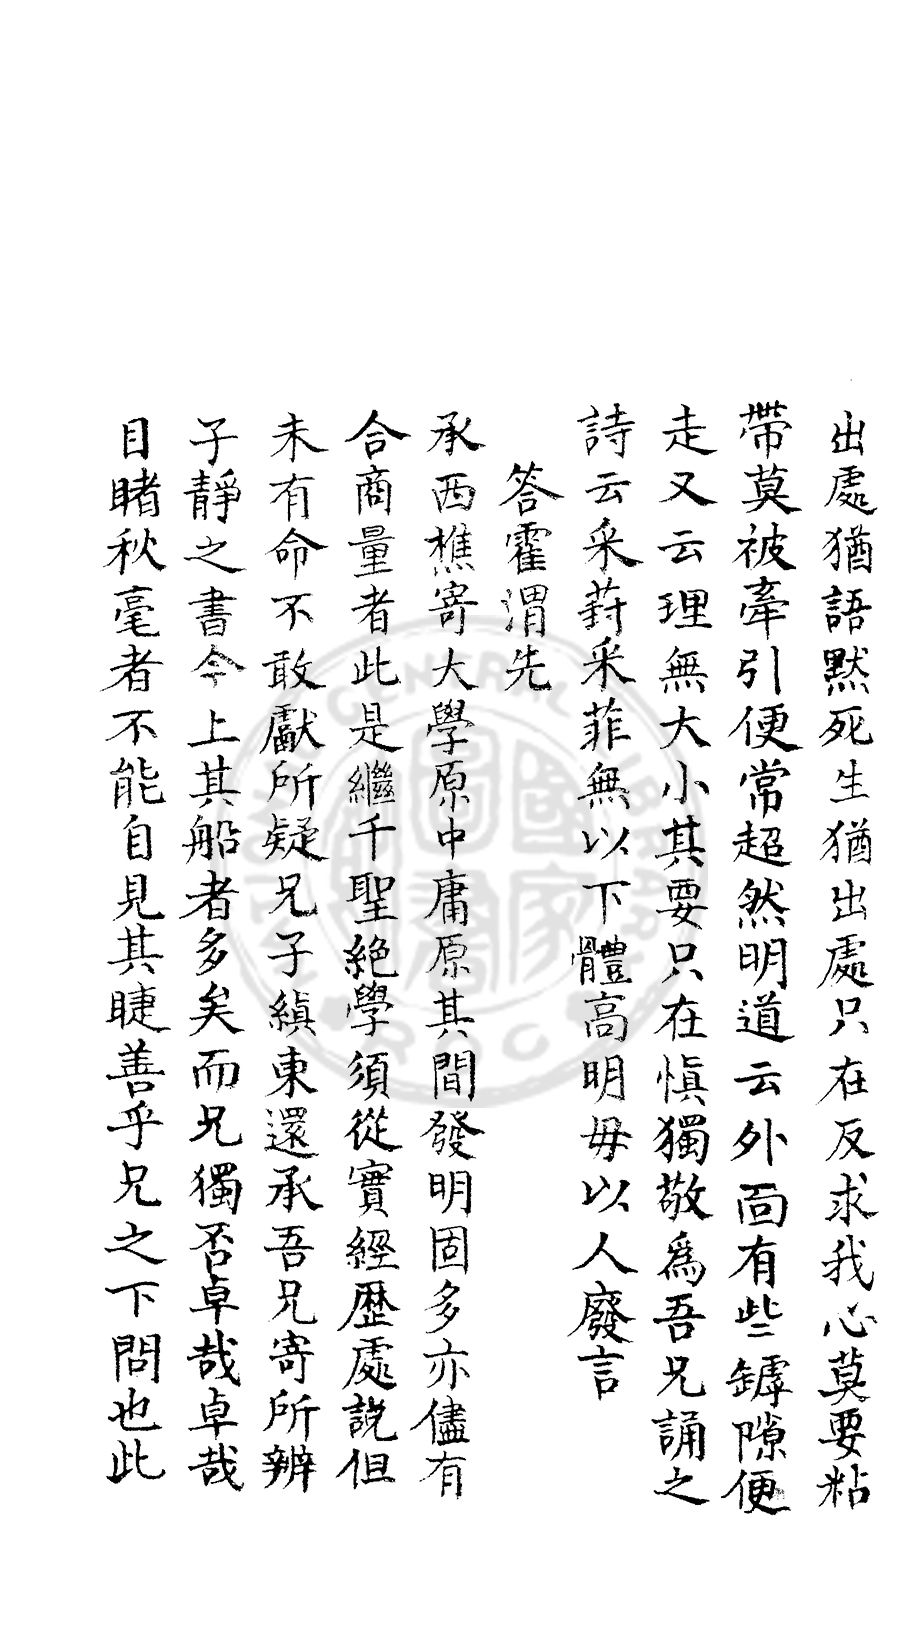 出處猶語默死生猶出處只在反求我心莫要粘
帶莫被牽引便常超然明道云外面有些罅隙便
走又云理無大小其要只在慎獨敬為吾兄誦之
詩云采葑采菲無以下體高明毋以人廢言
答霍渭先
承西樵寄大學原中庸原其間發明固多亦儘有
合商量者此是繼千聖絶學須從實經歷處説但
未有命不敢獻所疑兄子縝東還承吾兄寄所辨
子靜之書今上其船者多矣而兄獨否卓哉卓哉
目睹秋毫者不能自見其睫善乎兄之下問也此
國家圖書館
NATIONAL CENTRAL LIBRARY
R.O.C